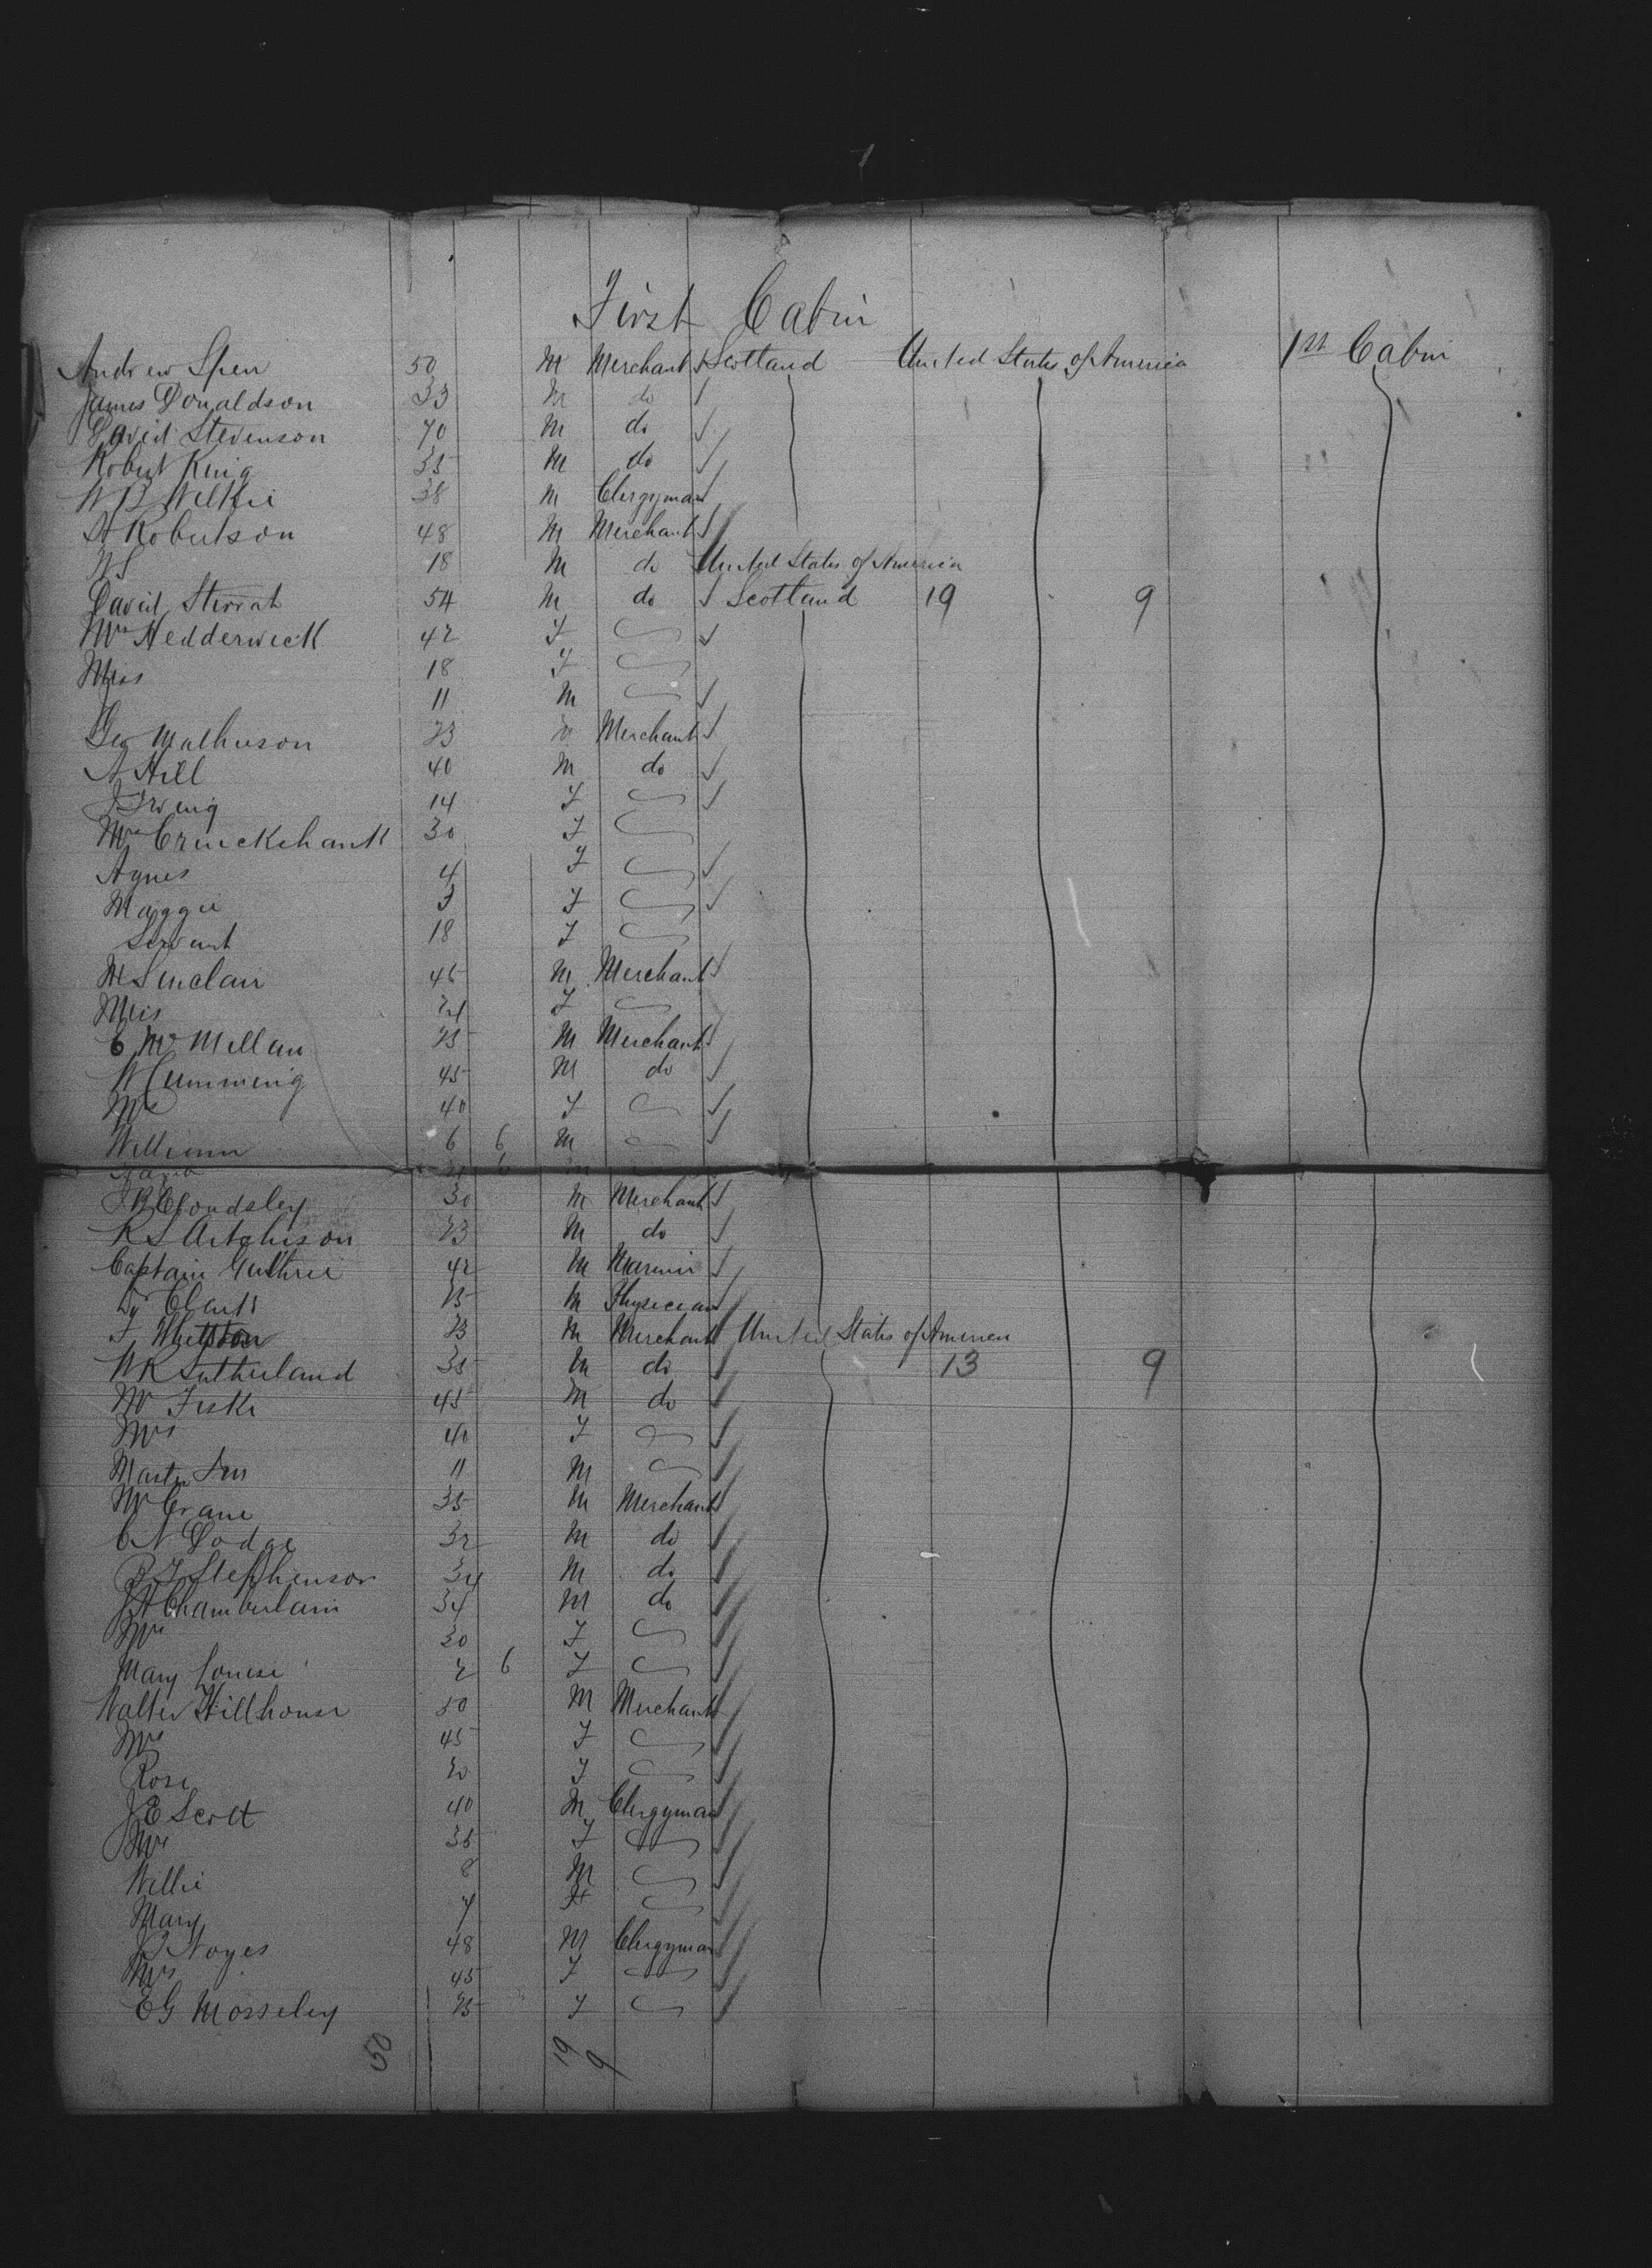 First Cabin
Andrew Spen 50 M Merchant Scotland United States of America 1st Cabin
James Donaldson 33 M do
David Stevenson 70 M do
Robert King 35 M do
W B Wilkie 38 M Clergyman
A Robertson 48 M Merchant
WS 18 M do United States of America
David Sterrat 54 M do Scotland 19 9
Mrs Hedderwick 42 F
Miss 18 F
11 M
Geo Mathieson 23 M Merchant
A Hill 40 M do
J Irving 14 F
Mrs Cruickshank 30 F
Agnes 4 F
Maggie 3 F
Servant 18 F
H Sinclair 45 M Merchant
Miss 21 F
C McMillan 25 M Merchant
W Cumming 45 M do
Mrs 40 F
William 6 6 M
6
30 M Merchant
R S Aitchison 23 M do
Captain Guthrie 42 M Marinir
Dr Clark 25 M Physician
F 23 M Merchant United States of America
W R Sutherland 35 M do 13 9
Mr Fiske 45 M do
Mrs 40 F
Master 11 M
Mr Crane 35 M Merchant
C N Dodge 32 M do
Stephenson 34 M do
J A Chamberlain 34 M do
Mrs 30 F
Mary Louise 2 6 F
Walter Hillhouse 50 M Merchant
Mrs 45 F
Rose 20 F
J E Scott 40 M Clergyman
Mrs 35 F
Willie 8 M
Mary 7 F
Noyes 48 M Clergyman
Mrs 45 F
E G Mosseley 25 F
50 19 9